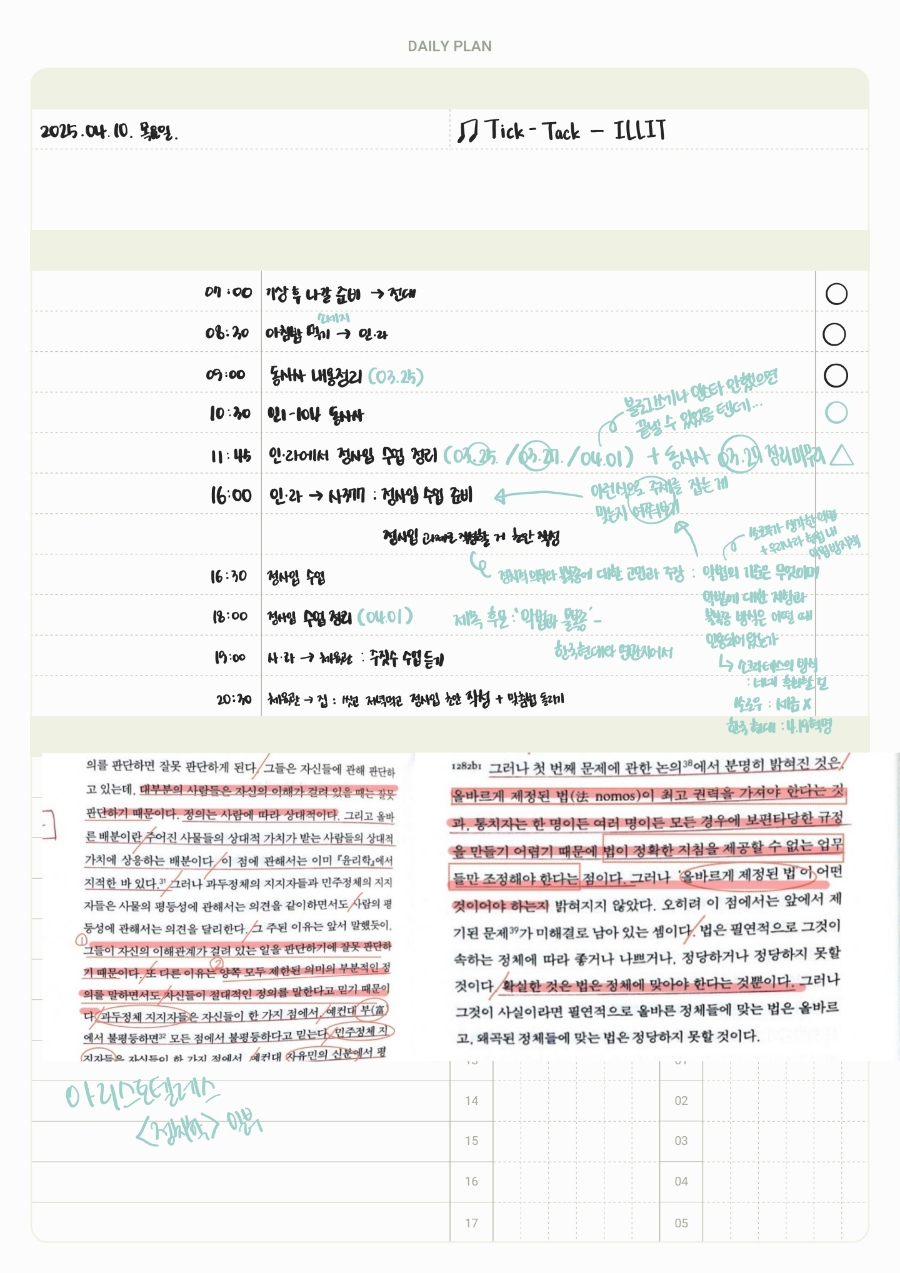 DAILY PLAN
2025.04.10. 목요일.
Tick-Tack — ILLIT
07:00 기상 후 나갈 준비 → 전대
소세지
08:30 아침밥 먹기 → 인·라
09:00 동사사 내용정리 (03.25)
10:30 인1-104 동사사
블로그쓰기나 인스타 안했으면
끝낼 수 있었을 텐데...
11:45 인·라에서 정사입 수업 정리 (03.25. / 03.27. / 04.01) + 동사사 03.25 정리 마무리
16:00 인·라 → 사277 : 정사입 수업 준비
이런식으로 주제를 잡는 게
맞는지 여쭤보기
정사입 과제로 작성할 거 초안 작성
소로우가 생각한 악법
+ 우리나라 헌법 내
16:30 정사입 수업
정치적 의무와 불복종에 대한 고민과 주장 : 악법의 기준은 무엇이며
악법에 대한 저항과
불복종 방식은 어떨 때
인용되어 왔는가
18:00 정사입 수업 정리 (04.01)
제목 후보 : '악법과 불복종' –
한국현대와 연관지어서
19:00 사·라 → 체육관 : 주짓수 수업 듣기
↳ 소크라테스의 방식
소로우 : 세금 X
한국 현대 : 4.19혁명
20:30 체육관 → 집 : 씻고 저녁먹고 정사입 초안 작성 + 맞춤법 돌리기
의를 판단하면 잘못 판단하게 된다. 그들은 자신들에 관해 판단하
고 있는데, 대부분의 사람들은 자신의 이해가 걸려 있을 때는 잘못
판단하기 때문이다. 정의는 사람에 따라 상대적이다. 그리고 올바
른 배분이란 주어진 사물들의 상대적 가치가 받는 사람들의 상대적
가치에 상응하는 배분이다. 이 점에 관해서는 이미 『윤리학』에서
지적한 바 있다.31 그러나 과두정체의 지지자들과 민주정체의 지지
자들은 사물의 평등성에 관해서는 의견을 같이하면서도 사람의 평
등성에 관해서는 의견을 달리한다. 그 주된 이유는 앞서 말했듯이,
① 그들이 자신의 이해관계가 걸려 있는 일을 판단하기에 잘못 판단하
기 때문이다. 또 다른 이유는 ② 양쪽 모두 제한된 의미의 부분적인 정
의를 말하면서도 자신들이 절대적인 정의를 말한다고 믿기 때문이
다. 과두정체 지지자들은 자신들이 한 가지 점에서, 예컨대 부(富)
에서 불평등하면32 모든 점에서 불평등하다고 믿는다. 민주정체 지
지자들은 자신들이 한 가지 점에서, 예컨대 자유민의 신분에서 평
1282b1 그러나 첫 번째 문제에 관한 논의38에서 분명히 밝혀진 것은,
올바르게 제정된 법(法 nomos)이 최고 권력을 가져야 한다는 것
과, 통치자는 한 명이든 여러 명이든 모든 경우에 보편타당한 규정
을 만들기 어렵기 때문에 법이 정확한 지침을 제공할 수 없는 업무
들만 조정해야 한다는 점이다. 그러나 '올바르게 제정된 법'이 어떤
것이어야 하는지 밝혀지지 않았다. 오히려 이 점에서는 앞에서 제
기된 문제39가 미해결로 남아 있는 셈이다. 법은 필연적으로 그것이
속하는 정체에 따라 좋거나 나쁘거나, 정당하거나 정당하지 못할
것이다. 확실한 것은 법은 정체에 맞아야 한다는 것뿐이다. 그러나
그것이 사실이라면 필연적으로 올바른 정체들에 맞는 법은 올바르
고, 왜곡된 정체들에 맞는 법은 정당하지 못할 것이다.
아리스토텔레스
<정치학> 일부
14 02
15 03
16 04
17 05